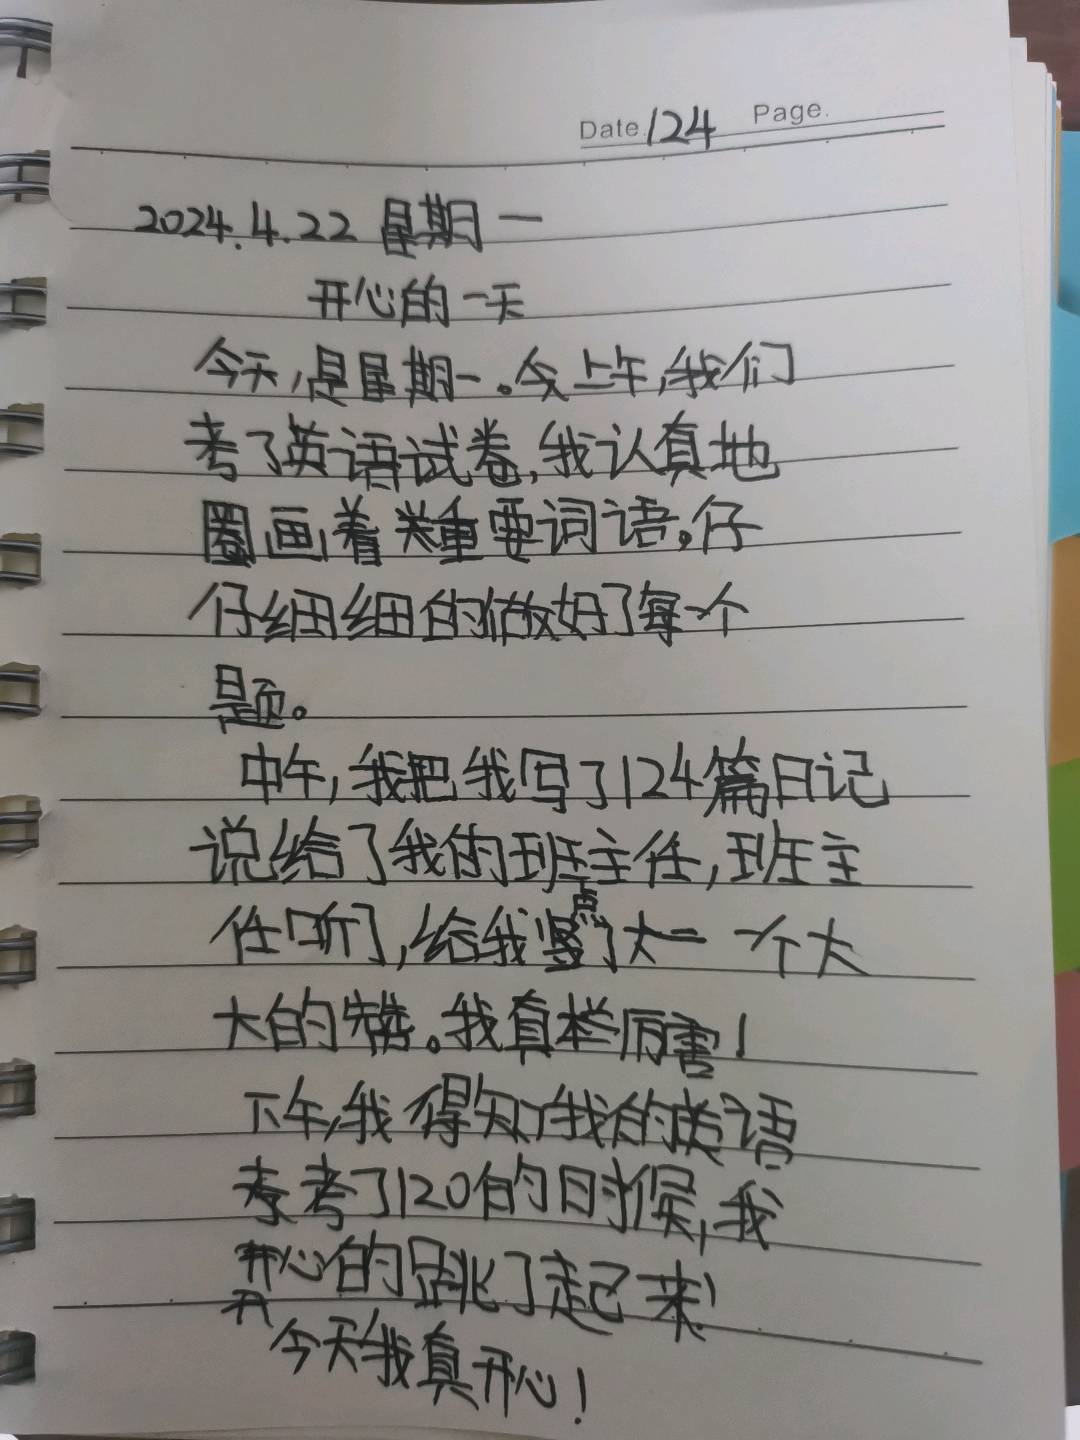 Date. 124 Page.
2024.4.22 星期一
开心的一天
今天,是星期一。今上午,我们
考了英语试卷,我认真地
圈画着关重要词语。仔
仔细细的做好了每一个
题。
中午,我把我写了124篇日记
说给了我的班主任,班主
任听了,给我竖了大一个大
点
大的赞。我真棒厉害!
下午,我得知我的英语
考考了120的时候,我
开心的跳了起来!
开
今天我真开心!